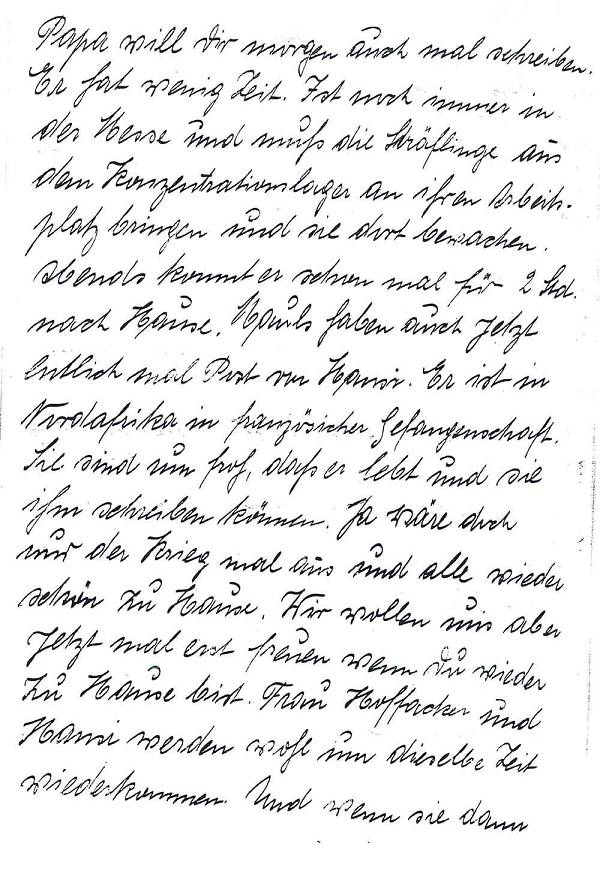 Papa will Dir morgen auch mal schreiben.
Er hat wenig Zeit. Ist noch immer in
der Messe und muß die Sträflinge aus
dem Konzentrationslager an ihren Arbeits-
platz bringen und sie dort bewachen.
Abends kommt er schon mal für 2 Std.
nach Hause. Pauls haben auch Jetzt
Entlich mal Post von Hansi. Er ist in
Nordafrika in französicher Gefangenschaft.
Sie sind nun froh, daß er lebt und sie
ihm schreiben können. Ja wäre doch
nur der Krieg mal aus und alle wieder
schön zu Hause. Wir wollen uns aber
Jetzt mal erst freuen wenn Du wieder
zu Hause bist. Frau Hoffacker und
Hansi werden wohl um dieselbe Zeit
wiederkommen. Und wenn sie dann